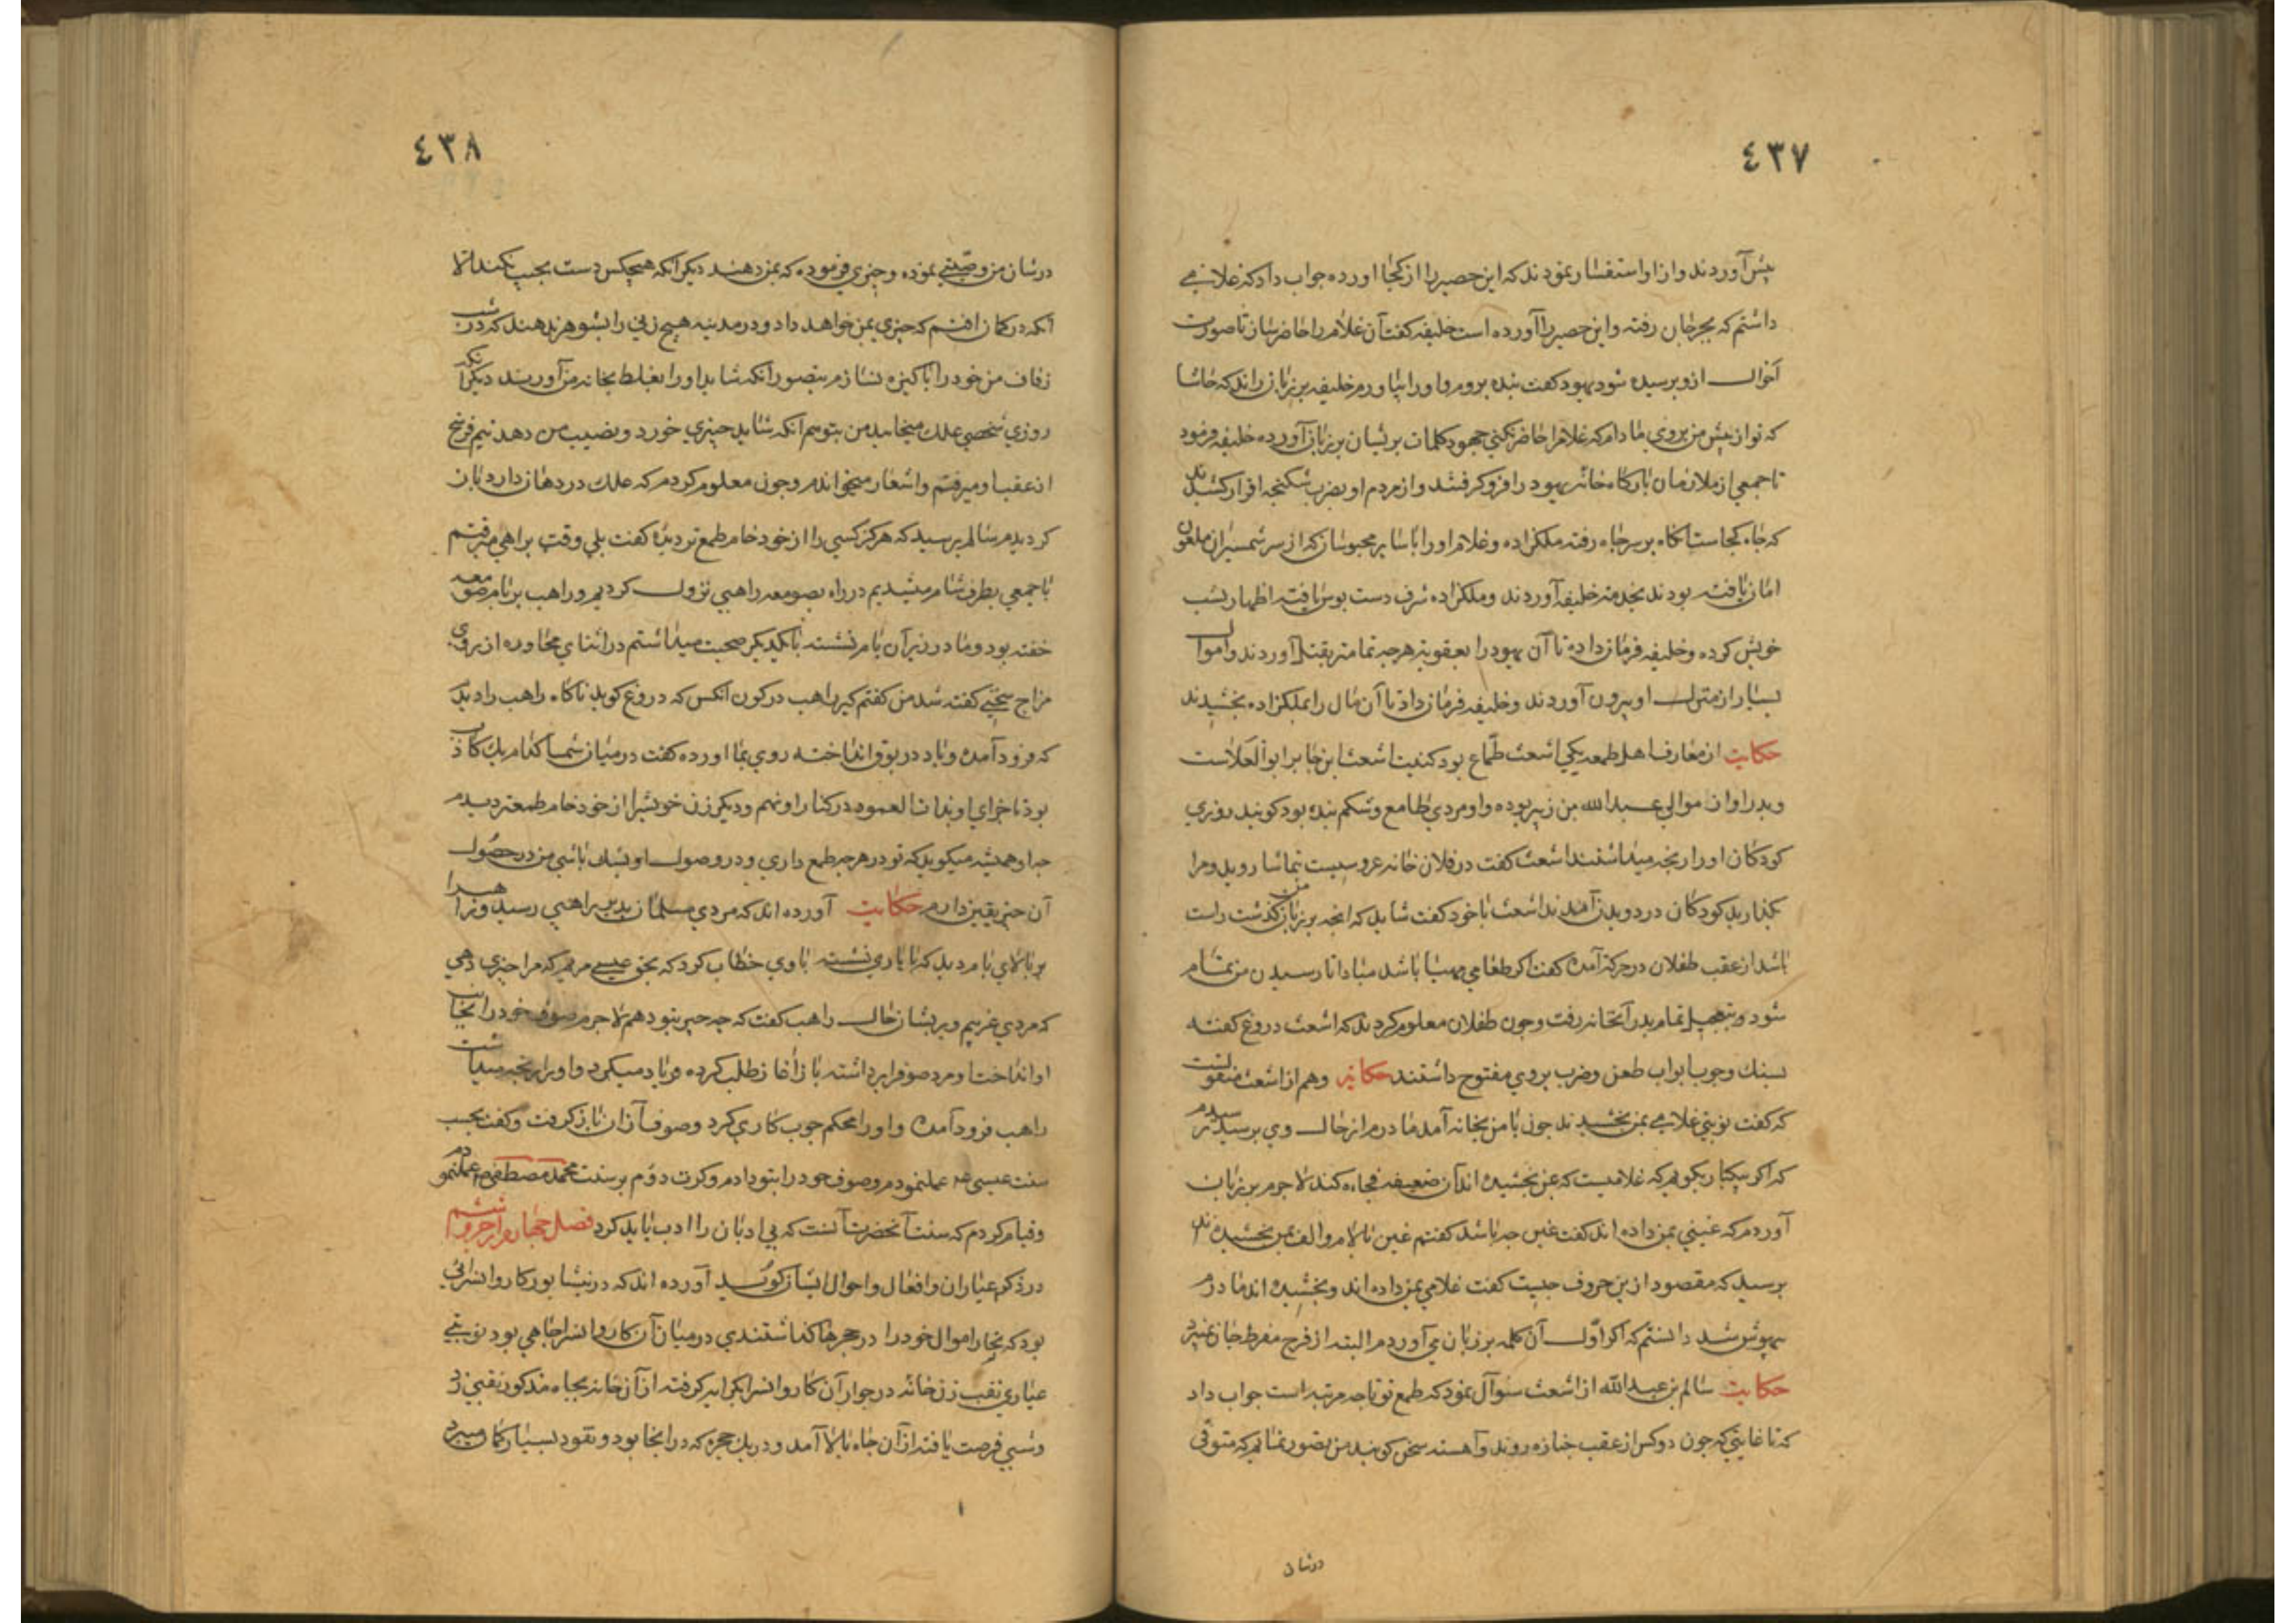 ٤٣٧
پیش آوردند و از او استفسار نمودند که این حصیر را از کجا اورده جواب داد که غلامی
داشتم که بجرجان رفته و این حصیر را آورده است خلیفه کفت آن غلام را حاضر ساز تا صورت
احوال ازو پرسیده شود یهود کفت بنده بروم و او را بیاورم خلیفه بر زبان راند که حاشا
که تو از پیش من بروی مادام که غلام را حاضر نکنی جهود کلمات پریشان بر زبان آورده خلیفه فرمود
تا جمعی از ملازمان بارکاه خانه یهود را فرو کرفتند و از مردم او بضرب شکنجه اقرار کشیدند
که چاه کجاست آنکاه بر سر چاه رفته ملکزاده و غلام او را با سایر محبوسان که از سر شمشیر آن ملعون
امان یافته بودند بخدمت خلیفه آوردند و ملکزاده شرف دست بوس یافته اظهار نسب
خویش کرده و خلیفه فرمان داده تا آن یهود را بعقوبت هرچه تمامتر بقتل آوردند و اموال
بسیار از منزل او بیرون آوردند و خلیفه فرمان داد تا آن مال را بملکزاده بخشیدند
حکایت از معارف اهل طمع یکی اشعث طماع بود کنیت اشعث ابن جابر ابو العلاست
و پدر او از موالی عبد الله بن زبیر بوده و او مردی طامع و شکم بنده بود کویند روزی
کودکان او را رنجه میداشتند اشعث کفت در فلان خانه عروسیست بتماشا روید و مرا
بکذارید کودکان در دویدن آمدند اشعث با خود کفت شاید که انچه بر زبان من کذشت راست
باشد از عقب طفلان در حرکت آمده کفت اکر طعامی مهیا باشد مبادا تا رسیدن من تمام
شود و بتعجیل تمام بدر آنخانه رفت و چون طفلان معلوم کردند که اشعث دروغ کفته
بسنک و چوب ابواب طعن و ضرب بروی مفتوح داشتند حکایة و هم از اشعث منقولست
که کفت نوبتی غلامی بمن بخشیدند چون با من بخانه آمد مادرم از حال وی پرسید ترسیدم
که اکر بیکبار بکویم که غلامیست که بمن بخشیده اند آن ضعیفه فجاءه کند لاجرم بر زبان
آوردم که غینی بمن داده اند کفت غین چه باشد کفتم غین با لام و الف بمن بخشیده اند
پرسید که مقصود ازین حروف چیست کفت غلامی بمن داده اند و بخشیده اند مادرم
بیهوش شد دانستم که اکر اول آن کلمه بر زبان می آوردم البته از فرح مفرط جان میبرد
حکایت سالم بن عبد الله از اشعث سوآل نمود که طمع تو تا چه مرتبه است جواب داد
که تا غایتی که چون دو کس از عقب جنازه روند و آهسته سخن کویند من تصور نمایم که متوفی
درشان
٤٣٨
درشان من وصیتی نموده و چیزی فرموده که بمن دهند دیکر آنکه هیچکس دست بجیب نکند الا
آنکه در کمان افتم که چیزی بمن خواهد داد و در مدینه هیچ زنی را بشوهر ندهند که در شب
زفاف من خود را پاکیزه نسازم بتصور آنکه شاید او را بغلط بخانه من آورند دیکر آنکه
روزی شخصی علک میخایید من بتوهم آنکه شاید چیزی خورد و نصیب من دهد نیم فرسخ
از عقب او میرفتم و اشعار میخواندم و چون معلوم کردم که علک در دهان دارد باز
کردیدم سالم پرسید که هرکز کسی را از خود خام طمع تر دیده کفت بلی وقتی براهی میرفتم
با جمعی بطرف شام میشدیم در راه بصومعه راهبی نزول کردیم و راهب بر بام صومعه
خفته بود و ما در زیر آن بام نشسته با یکدیکر صحبت میداشتم در اثنای محاوره از روی
مزاح سخنی کفته شد من کفتم کیر راهب در کون آنکس که دروغ کوید ناکاه راهب را دید
که فرود آمده و باد در بوق انداخته روی بما اورده کفت در میان شما کدام یک کاذب
بود تا جزای او بذات العمود در کنار او نهم و دیکر زن خویش را از خود خام طمعتر دیدم
چه او همیشه میکوید که تو در هرچه طمع داری و در وصول او بشک باشی من در حصول
آن چیز یقین دارم حکایت آورده اند که مردی مسلمان بدیر راهبی رسید و راهب را
بر بالای بام دید که با یاری نشسته با وی خطاب کرد که بحق عیسی مریم که مرا چیزی دهی
که مردی غریبم و پریشان حال راهب کفت که چه چیز بتو دهم لاجرم صوف خود را بجانب
او انداخت و مرد صوف را برداشته باز آغاز طلب کرده فریاد میکرد و او را رنجه میداشت
راهب فرود آمده و او را محکم چوب کاری کرد و صوف از آن باز کرفت و کفت بحسب
سنت عیسی عه عمل نمودم و صوف خود را بتو دادم و کرت دوم بر سنت محمد مصطفی ص عمل نمودم
و قیام کردم که سنت آنحضرت آنست که بی ادبان را ادب باید کرد فصل چهاردهم از جزو ششم
در ذکر عیاران و افعال و احوال ایشان کوید آورده اند که در نیشابور کاروانسرائی
بود که تجار اموال خود را در حجرها کذاشتندی در میان آن کاروانسرا چاهی بود نوبتی
عیاری نقب زن خانه در جوار آن کاروانسرا بکرایه کرفته از آن خانه بچاه مذکور نقبی زد
و شبی فرصت یافته از آن چاه بالا آمد و در یک حجره که در انجا بود و نقود بسیار کمان میبرد